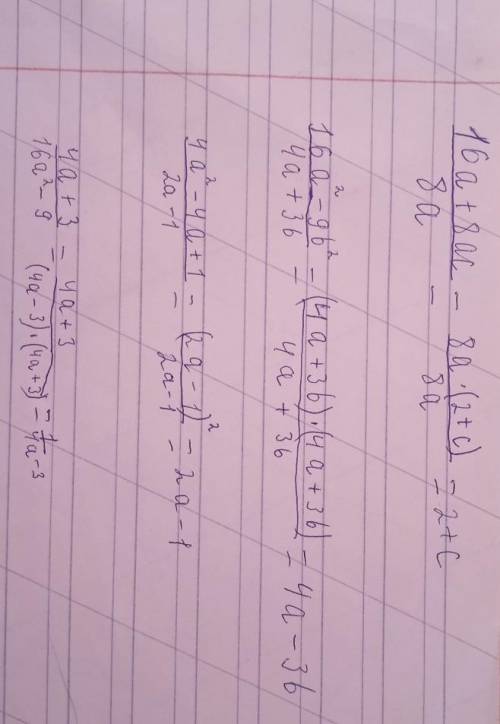 16a + 8ac / 8a = 8a·(2+c) / 8a = 2+c
16a² - 9b² / 4a + 3b = (4a+3b)·(4a+3b) / 4a + 3b = 4a - 3b
4a² - 4a + 1 / 2a - 1 = (2a - 1)² / 2a - 1 = 2a - 1
4a + 3 / 16a² - 9 = 4a + 3 / (4a - 3)·(4a + 3) = 1 / 4a - 3